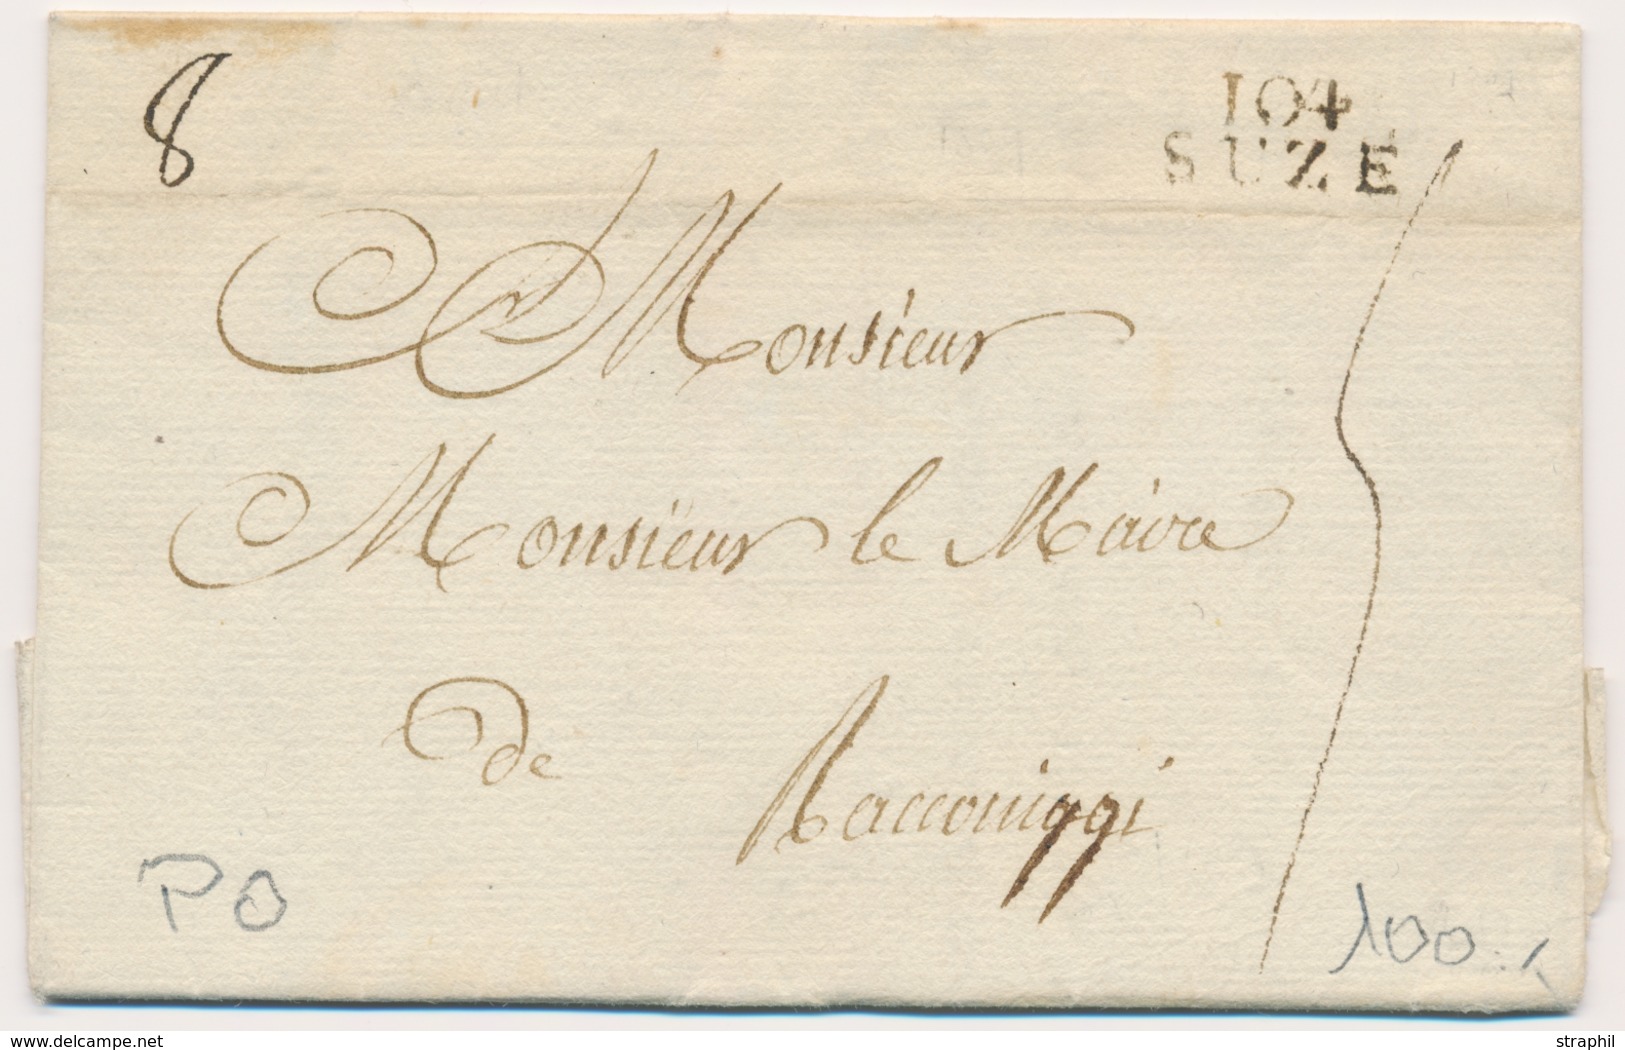 8
104
SUZE
Monsieur
Monsieur le Maire
de Racconiggi
PO
100
delcampe.net
straphil